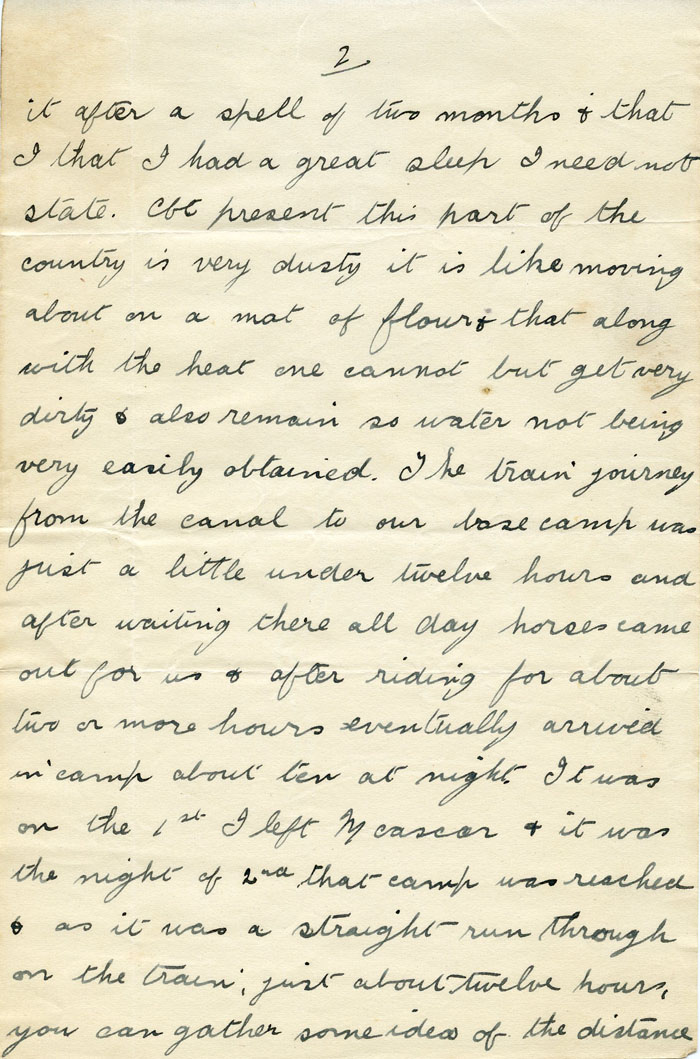 2
it after a spell of two months & that
I that I had a great sleep I need not
state. At present this part of the
country is very dusty it is like moving
about on a mat of flour & that along
with the heat one cannot but get very
dirty & also remain so water not being
very easily obtained. The train journey
from the canal to our base camp was
just a little under twelve hours and
after waiting there all day horses came
out for us & after riding for about
two or more hours eventually arrived
in camp about ten at night. It was
on the 1st I left & it was
the night of 2nd that camp was reached
& as it was a straight run through
on the train, just about twelve hours,
you can gather some idea of the distance